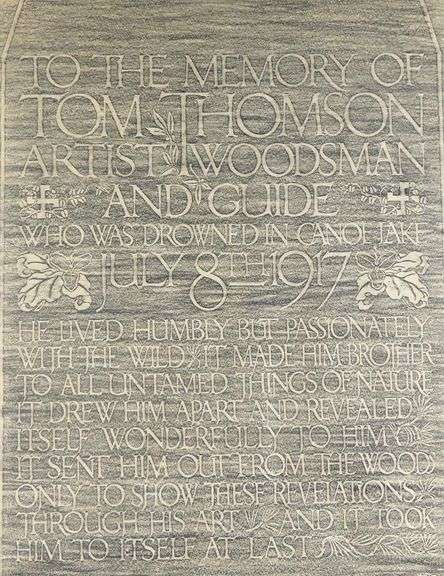 TO THE MEMORY OF
TOM THOMSON
ARTIST WOODSMAN
AND GUIDE
WHO WAS DROWNED IN CANOE LAKE
JULY 8TH 1917
HE LIVED HUMBLY BUT PASSIONATELY
WITH THE WILD IT MADE HIM BROTHER
TO ALL UNTAMED THINGS OF NATURE
IT DREW HIM APART AND REVEALED
ITSELF WONDERFULLY TO HIM
IT SENT HIM OUT FROM THE WOODS
ONLY TO SHOW THESE REVELATIONS
THROUGH HIS ART AND IT TOOK
HIM TO ITSELF AT LAST